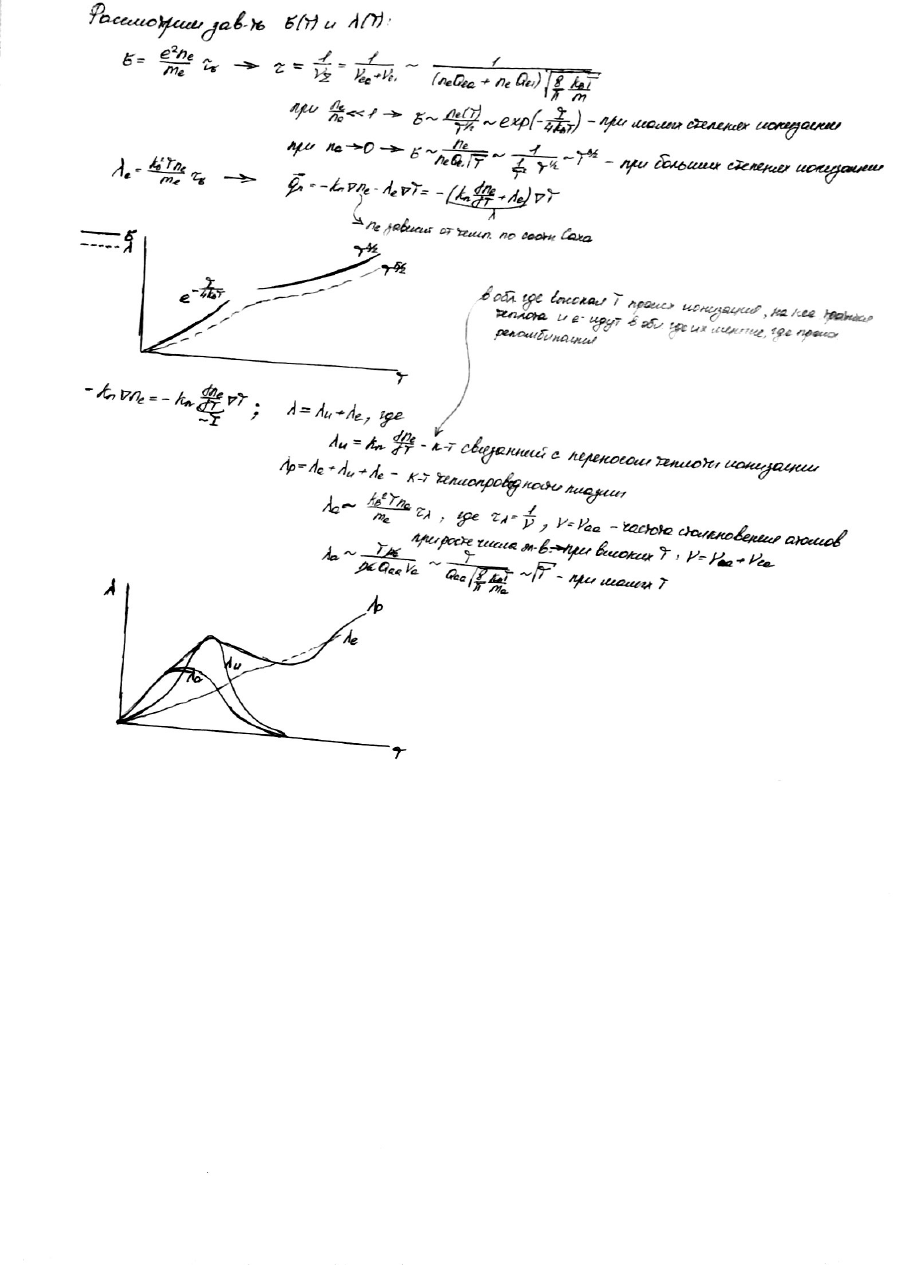 Рассмотрим зав-ть σ(T) и λ(T):
σ = e²nₑ/mₑ τσ → τ = 1/νΣ = 1/(νea+νei) ~ 1/((nₐQea + nₑQei)√(8/π kвT/m))
при nₑ/nₐ << 1 → σ ~ nₑ(T)/T^½ ~ exp(-I/4kвT) - при малых степенях ионизации
при nₐ→0 → σ ~ nₑ/(nₑQei√T) ~ 1/(1/T² T^½) ~ T^3/2 - при больших степенях ионизации
λₑ = kв²Tnₑ/mₑ τσ → q⃗ₙ = -kₙ∇nₑ - λₑ∇T = -(kₙ dnₑ/dT + λₑ)∇T
λ
→ nₑ зависит от темп. по соотн Саха
σ
λ
e^(-I/4kвT)
T^3/2
T^5/2
T
в обл где высокая T происх ионизация, на нее
теплота и e- идут в обл где их меньше, где происх
рекомбинация
-kₙ∇nₑ = -kₙ dnₑ/dT ∇T; λ = λи + λₑ, где
~I
λи = kₙ dnₑ/dT - к-т связанный с переносом теплоты ионизации
λp = λₑ + λи + λₑ - к-т теплопроводности плазмы
λₐ ~ kв²Tnₐ/mₐ τλ, где τλ = 1/ν, ν = νaa - частота столкновения атомов
при росте числа → при высоких T: ν = νaa + νea
λₐ ~ Tnₐ/(nₐQaaVₐ) ~ T/(Qaa√(8/π kвT/mₐ)) ~ √T - при малых T
λ
λp
λe
λи
λa
T